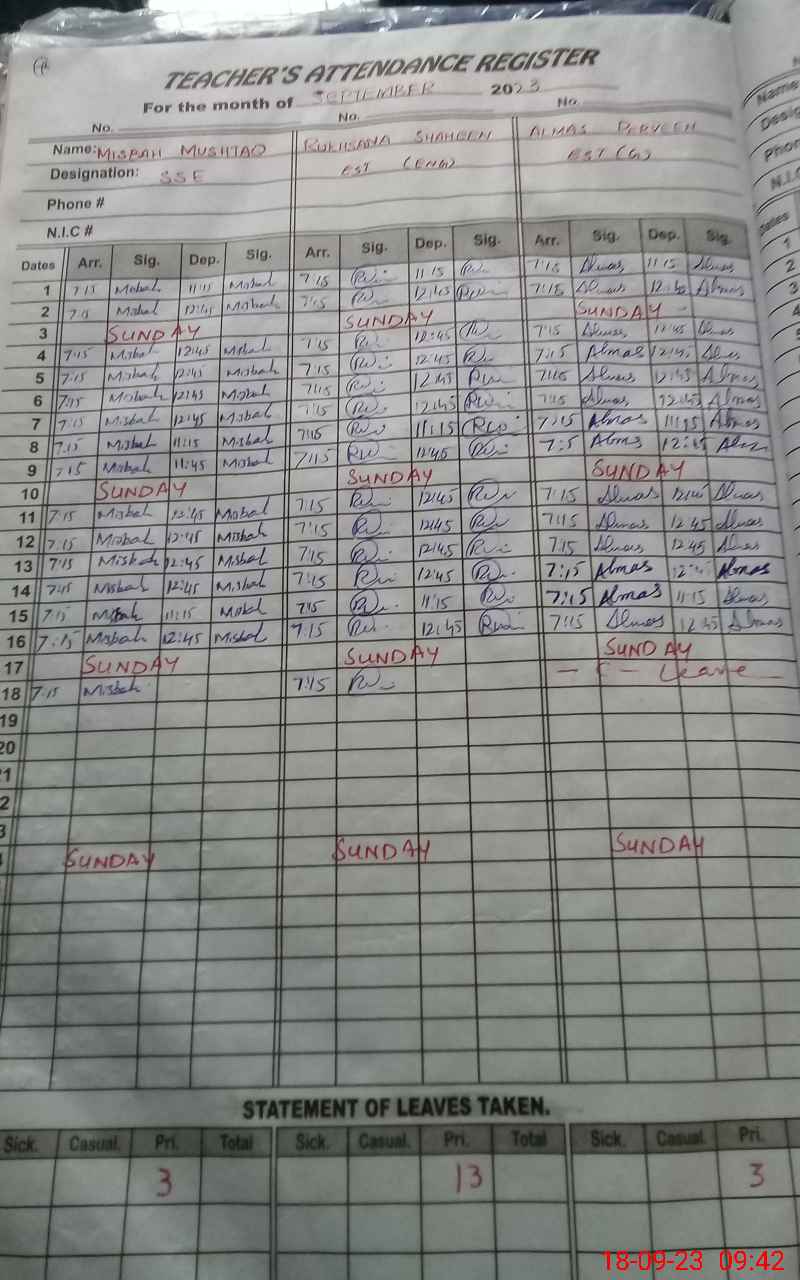 TEACHER'S ATTENDANCE REGISTER
For the month of SEPTEMBER 2023
No. No. No.
Name: MISBAH MUSHTAQ RUKHSANA SHAHEEN ALMAS PERVEEN
Designation: SSE EST (ENG) EST (G)
Phone #
N.I.C #
Dates Arr. Sig. Dep. Sig. Arr. Sig. Dep. Sig. Arr. Sig. Dep. Sig.
1 7:15 Misbah 11:15 Misbah 7:15 11:15 7:15 Almas 11:15 Almas
2 7:15 Misbah 12:45 Misbah 7:15 12:45 7:15 Almas Almas
3 SUNDAY SUNDAY SUNDAY
4 7:15 Misbah 12:45 Misbah 7:15 12:45 7:15 Almas 12:45 Almas
5 7:15 Misbah 12:45 Misbah 7:15 12:45 7:15 Almas 12:45 Almas
6 7:15 Misbah 12:45 Misbah 7:15 12:45 7:15 Almas 12:45 Almas
7 7:15 Misbah 12:45 Misbah 7:15 12:45 7:15 Almas 12:45 Almas
8 7:15 Misbah 11:15 Misbah 7:15 11:15 7:15 Almas 11:15 Almas
9 7:15 Misbah 11:45 Misbah 7:15 12:45 7:5 Almas Almas
10 SUNDAY SUNDAY SUNDAY
11 7:15 Misbah 12:45 Misbah 7:15 12:45 7:15 Almas Almas
12 7:15 Misbah 12:45 Misbah 7:15 12:45 7:15 Almas 12:45 Almas
13 7:15 Misbah 12:45 Misbah 7:15 12:45 7:15 Almas 12:45 Almas
14 7:15 Misbah 12:45 Misbah 7:15 12:45 7:15 Almas Almas
15 7:15 Misbah 11:15 Misbah 7:15 11:15 7:15 Almas 11:15 Almas
16 7:15 Misbah 12:45 Misbah 7:15 12:45 7:15 Almas 12:45 Almas
17 SUNDAY SUNDAY SUNDAY
18 7:15 Misbah 7:15 Leave
19
20
SUNDAY SUNDAY SUNDAY
STATEMENT OF LEAVES TAKEN.
Sick. Casual. Pri. Total Sick. Casual. Pri. Total Sick. Casual. Pri.
3 13 3
18-09-23 09:42